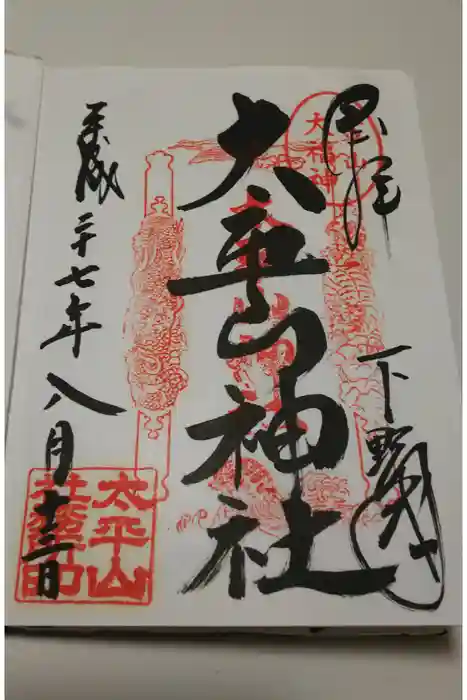 奉拝
下野國
大福神
太平山神社
平成二十七年八月十三日
太平山